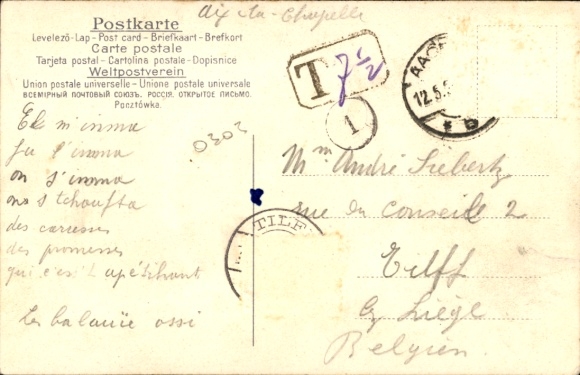 Aix-la-Chapelle
Postkarte
Levelező-Lap - Post card - Briefkaart - Brefkort
Carte postale
Tarjeta postal - Cartolina postale - Dopisnice
Weltpostverein
Union postale universelle - Unione postale universale
ВСЕМІРНЫЙ ПОЧТОВЫЙ СОЮЗЪ. РОССІЯ. ОТКРЫТОЕ ПИСЬМО.
Pocztówka.
T 7 1/2
1
AACH
12.5.
0303
El m'inma
ju l'inma
on s'inma
no s'tchoufta
des caresses
des promesses
qui c'esst
Les balauïe ossi
TILF
Mm André Siebertz
rue du conseil 2
Tilff
Lg Liége
Belgien